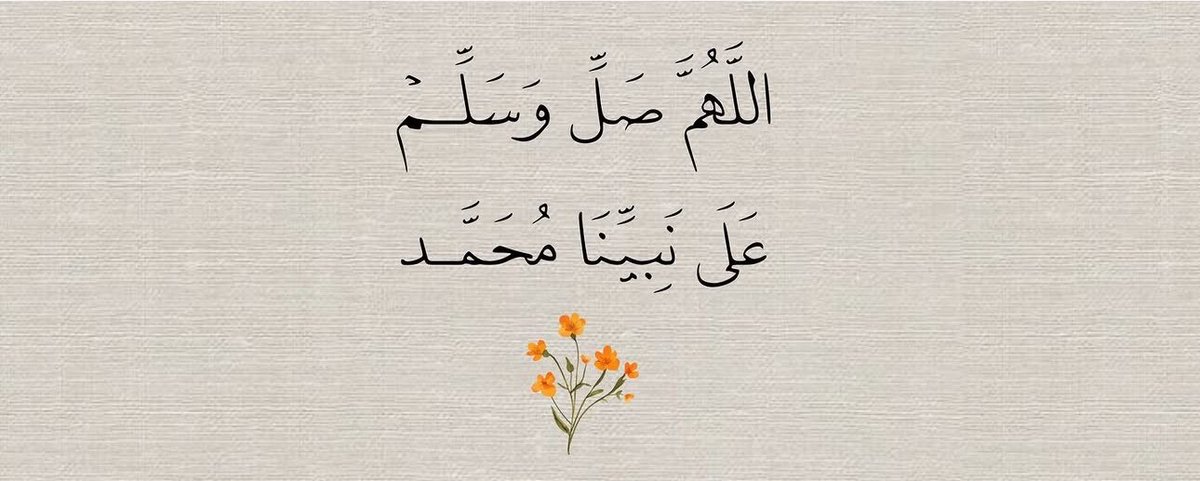 اللَّهُمَّ صَلِّ وَسَلِّمْ
عَلَى نَبِيِّنَا مُحَمَّد